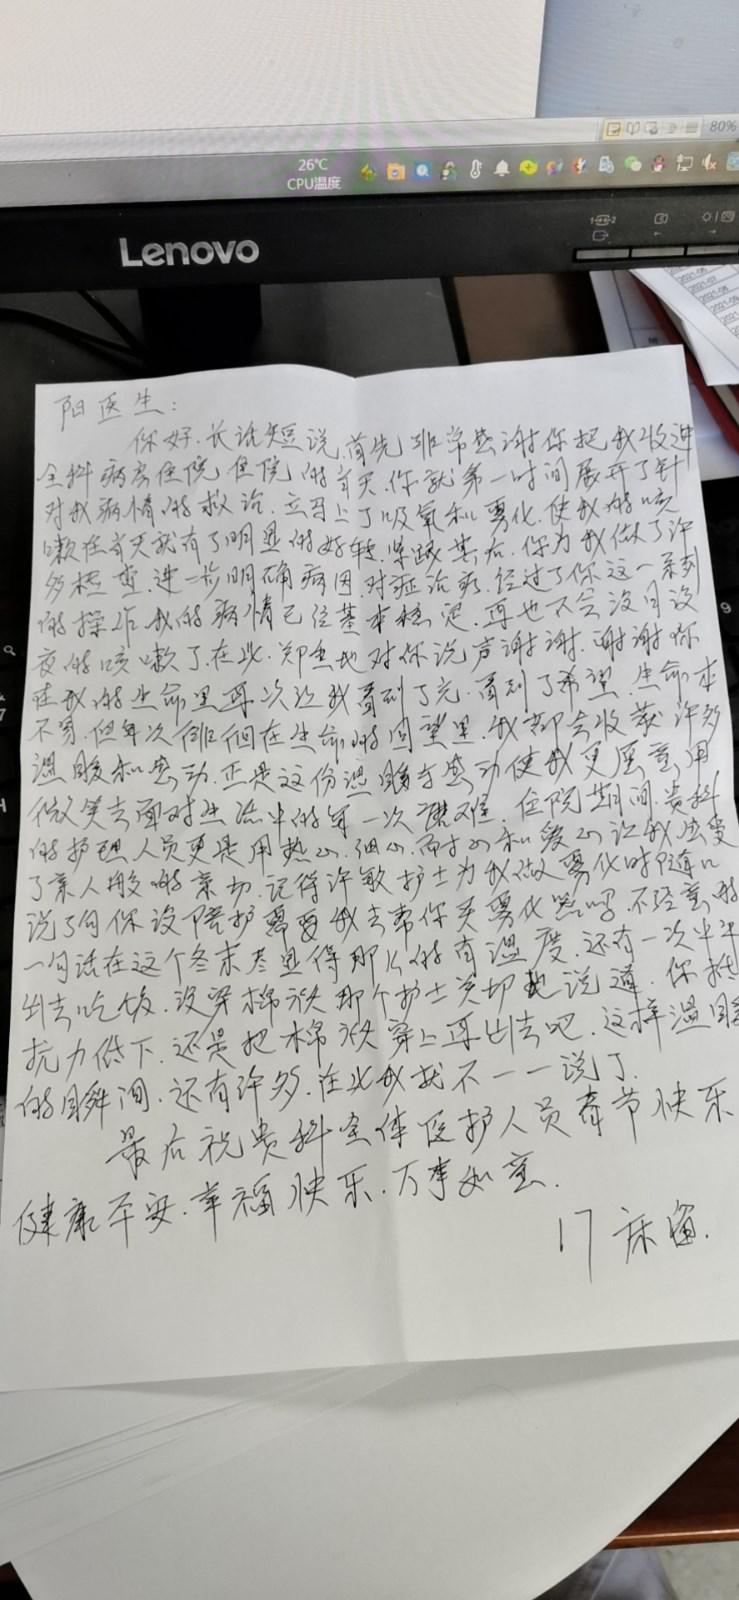 80%
26℃
CPU温度
Lenovo
阳医生:
你好.长话短说,首先非常感谢你把我收进
全科病房住院.住院的首天.你就第一时间展开了针
对我病情的救治.立马上了吸氧和雾化.使我的咳
嗽在首天就有了明显的好转.紧跟其后.你为我做了许
多检查.进一步明确病因.对症治疗.经过了你这一系列
的操作.我的病情已经基本稳定.再也不会没日没
夜的咳嗽了.在此.郑重地对你说声谢谢.谢谢你
在我的生命里再次让我看到了光.看到了希望.生命本
不易.但每次徘徊在生命的回望里.我都会收获许多
温暖和感动.正是这份温暖与感动使我更愿意用
微笑去面对生活中的每一次磨难.住院期间.贵科
的护理人员更是用热心.细心.耐心和爱心让我感受
了亲人般的亲切.记得许敏护士为我做雾化时随口
说了句你没陪护需要我去帮你买雾化器吗.不经意的
一句话在这个冬末尽显得那么的有温度.还有一次中午
出去吃饭.没穿棉袄那个护士关切地说道.你抵
抗力低下.还是把棉袄穿上再出去吧.这样温暖
的瞬间.还有许多.在此我就不一一说了.
最后祝贵科全体医护人员春节快乐
健康平安.幸福快乐.万事如意.
17床留.